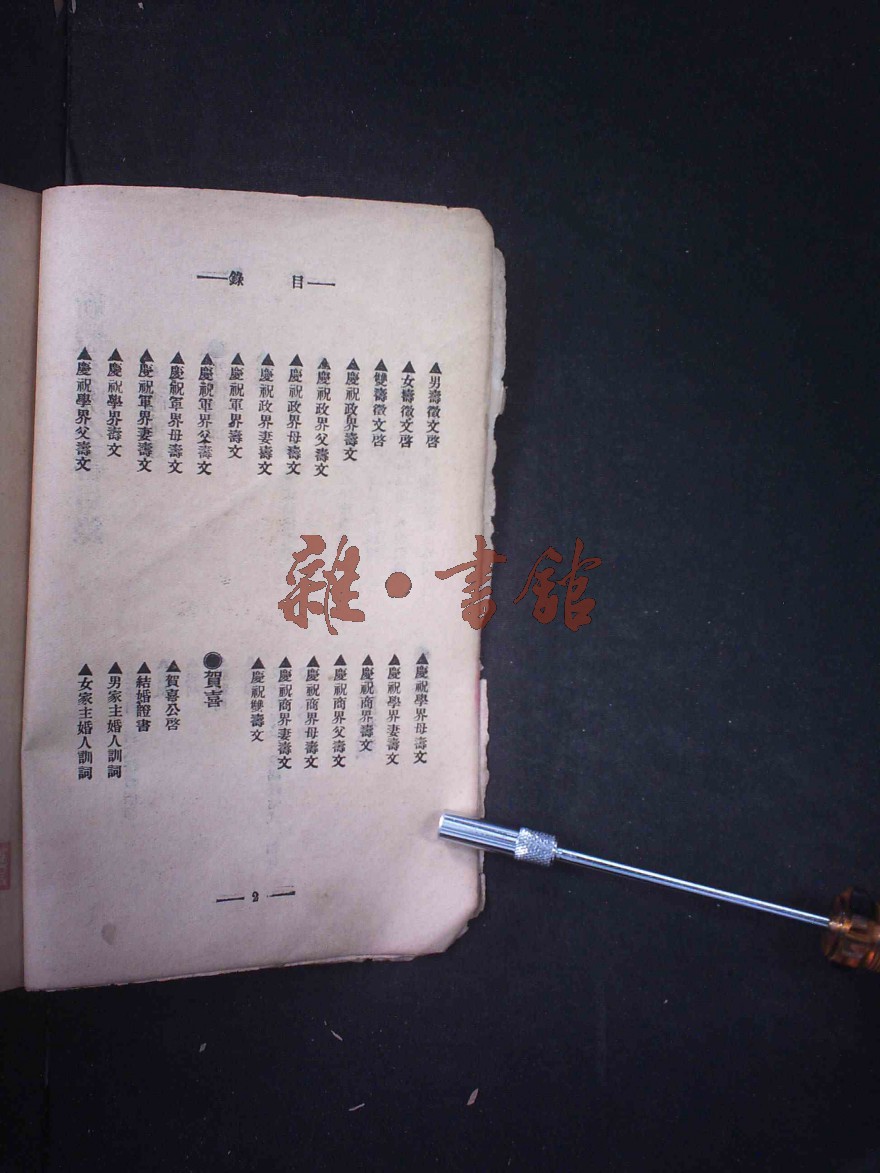 —錄 目—
▲男壽徵文啓
▲女壽徵文啓
▲雙壽徵文啓
▲慶祝政界壽文
▲慶祝政界父壽文
▲慶祝政界母壽文
▲慶祝政界妻壽文
▲慶祝軍界壽文
▲慶祝軍界父壽文
▲慶祝軍界母壽文
▲慶祝軍界妻壽文
▲慶祝學界壽文
▲慶祝學界父壽文
▲慶祝學界母壽文
▲慶祝學界妻壽文
▲慶祝商界壽文
▲慶祝商界父壽文
▲慶祝商界母壽文
▲慶祝商界妻壽文
▲慶祝雙壽文
◉賀喜
▲賀喜公啓
▲結婚證書
▲男家主婚人訓詞
▲女家主婚人訓詞
— 2 —
雜·書館